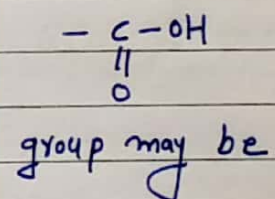 - C - OH
||
O
group may be